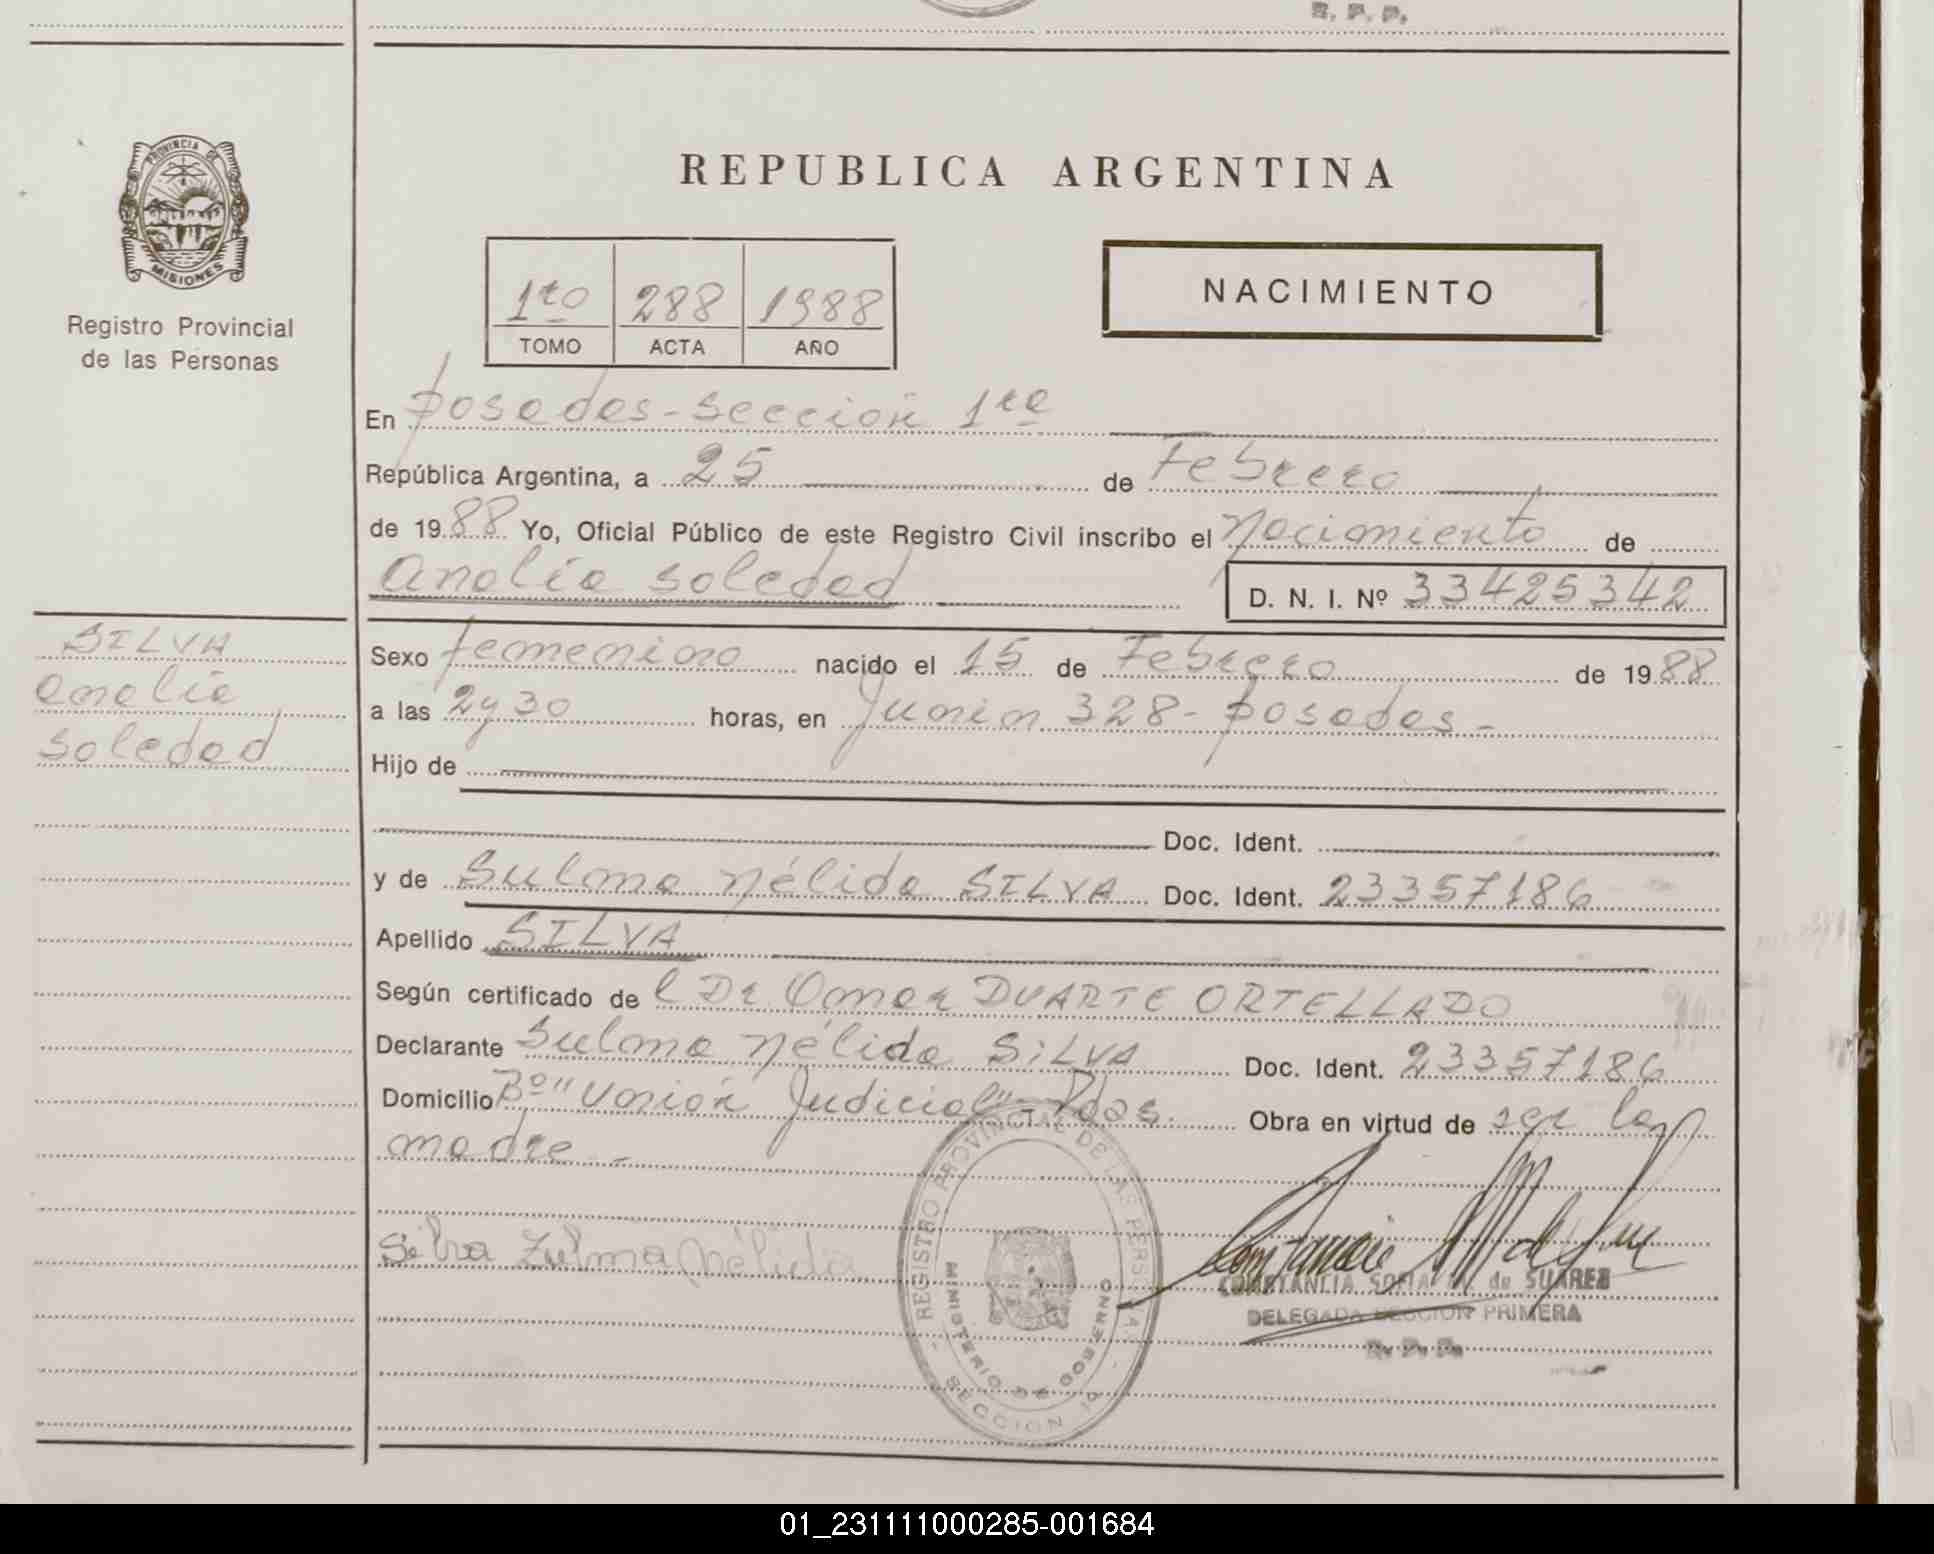 R. P. P.
PROVINCIA DE
MISIONES
Registro Provincial
de las Personas
REPUBLICA ARGENTINA
1ro 288 1988
TOMO ACTA AÑO
NACIMIENTO
En Posadas - Sección 1ra
República Argentina, a 25 de Febrero
de 1988 Yo, Oficial Público de este Registro Civil inscribo el Nacimiento de
Analía Soledad D. N. I. Nº 33425342
SILVA
Analía
Soledad
Sexo femenino nacido el 15 de Febrero de 1988
a las 2y30 horas, en Junin 328 - Posadas -
Hijo de
Doc. Ident.
y de Sulma Nélida SILVA Doc. Ident. 23357186
Apellido SILVA
Según certificado de l Dr Omar DUARTE ORTELLADO
Declarante Sulma Nélida SILVA Doc. Ident. 23357186
Domicilio Bº "Unión Judicial" - Pdas. Obra en virtud de ser la
madre -
Silva Zulma Nélida
REGISTRO PROVINCIAL DE LAS PERSONAS
MINISTERIO DE GOBIERNO
SECCION 1ª
CONSTANCIA SOFIA M. de SUAREZ
DELEGADA SECCION PRIMERA
R. P. P.
01_231111000285-001684